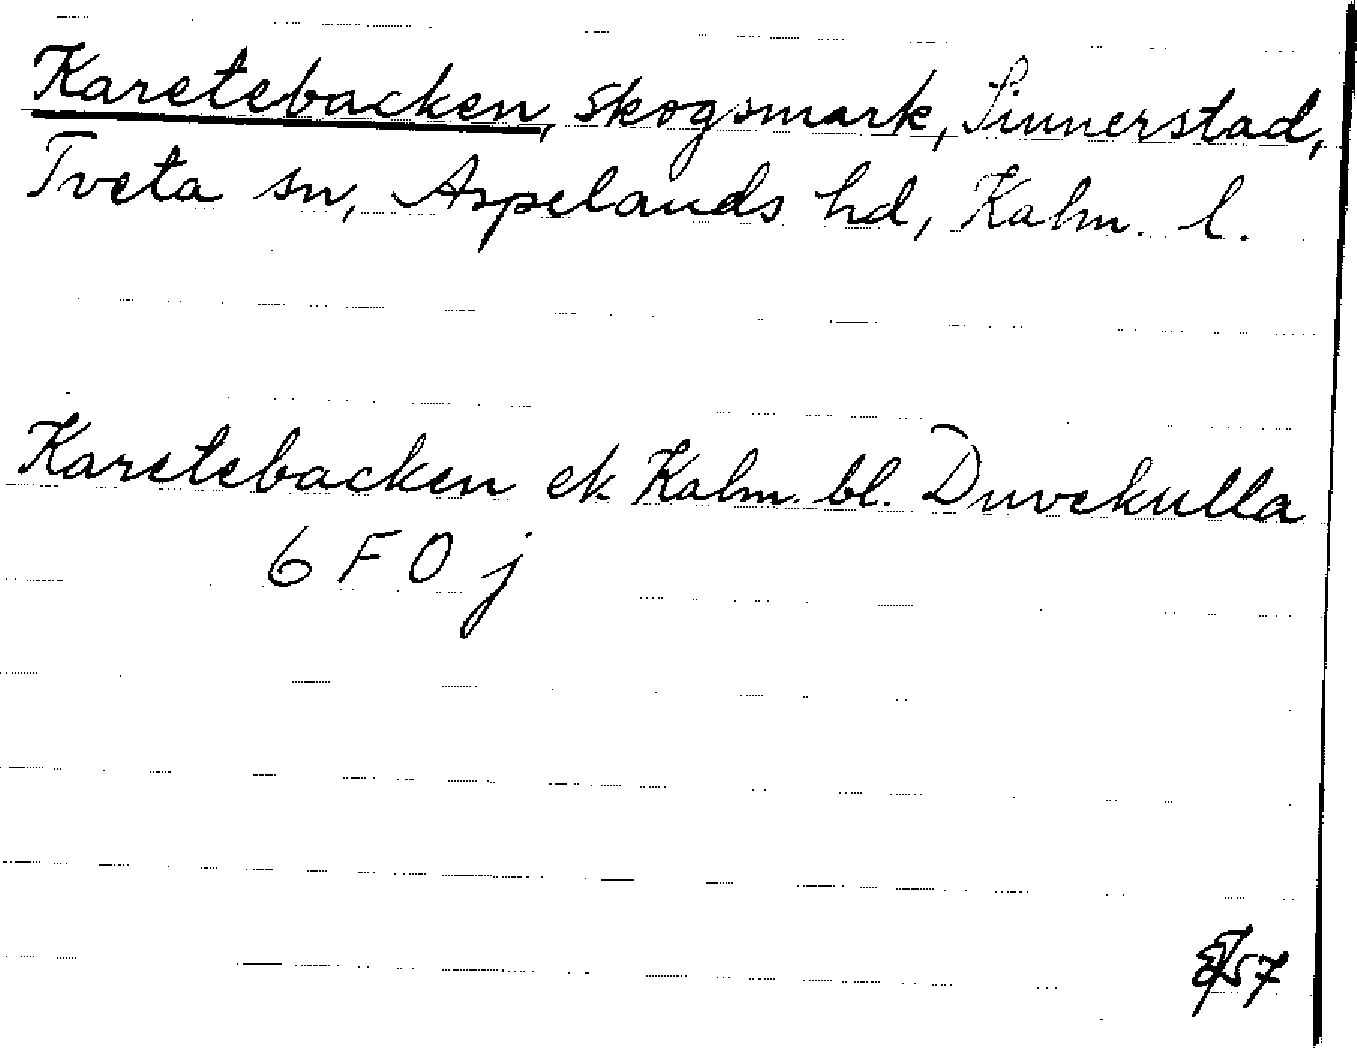 Karetebacken, skogsmark, Sinnerstad,
Tveta sn, Aspelands hd, Kalm. l.
Karetebacken ek Kalm. bl. Duvekulla
6 F 0 j
57